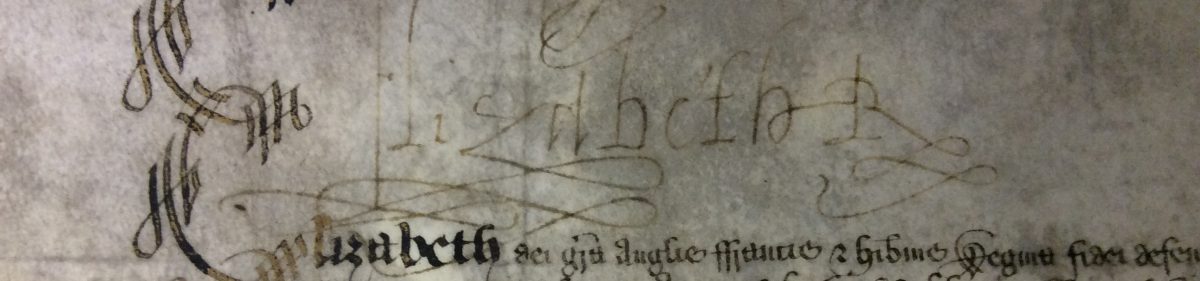 Elizabeth R
Elizabeth dei gr̄a Anglie ffrancie & hib̄nie Regina fidei defen